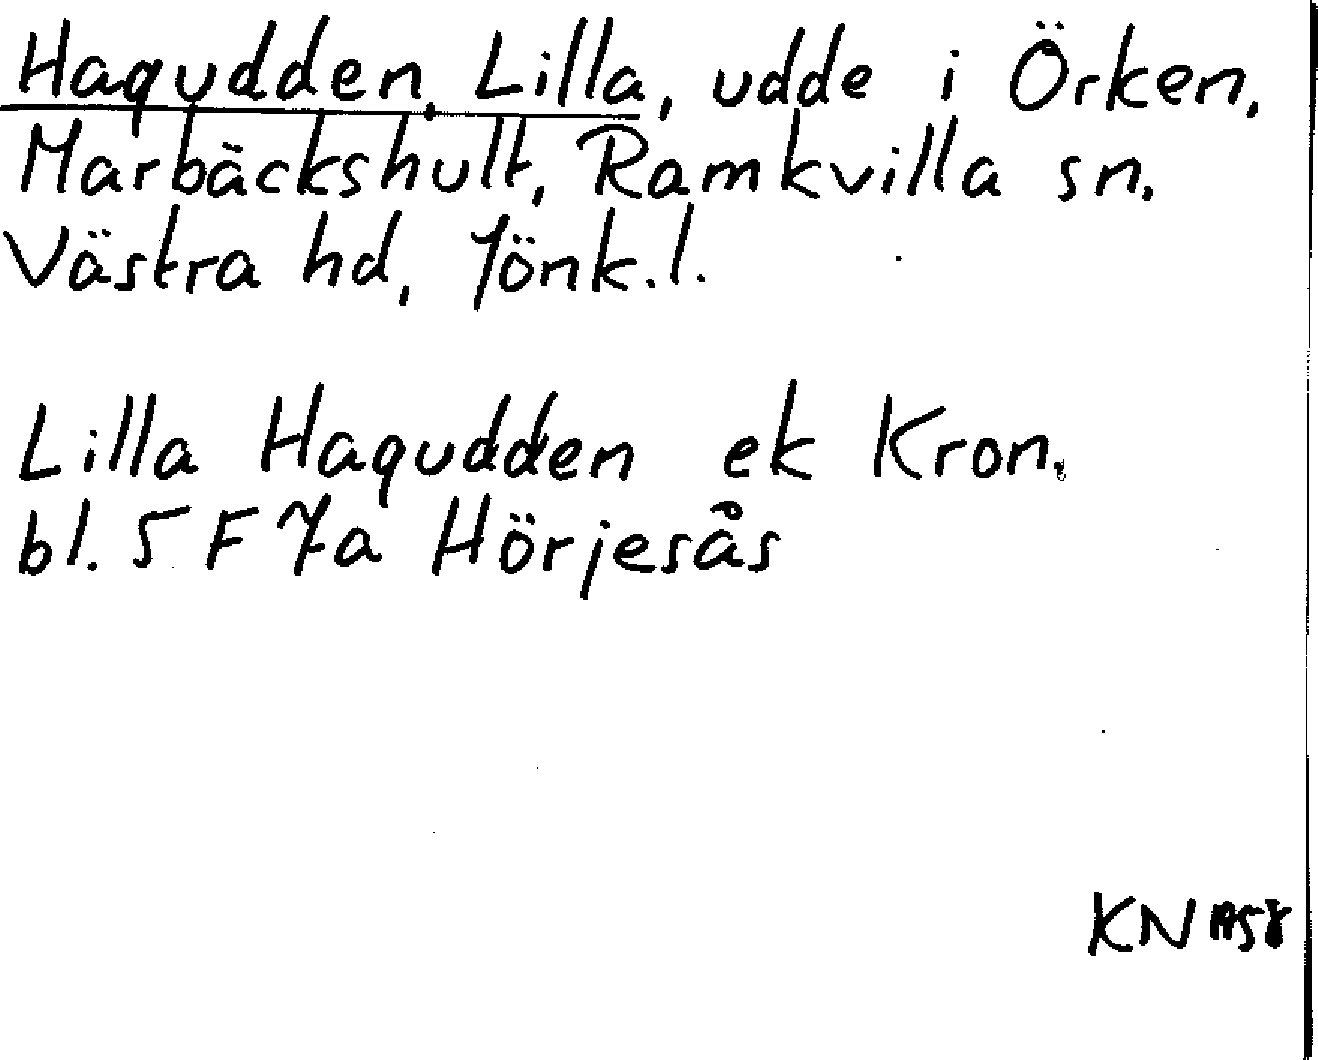 Hagudden, Lilla, udde i Örken,
Marbäckshult, Ramkvilla sn.
Västra hd, Jönk. l.
Lilla Hagudden ek Kron.
bl. 5 F 7a Hörjesås
KN 1958